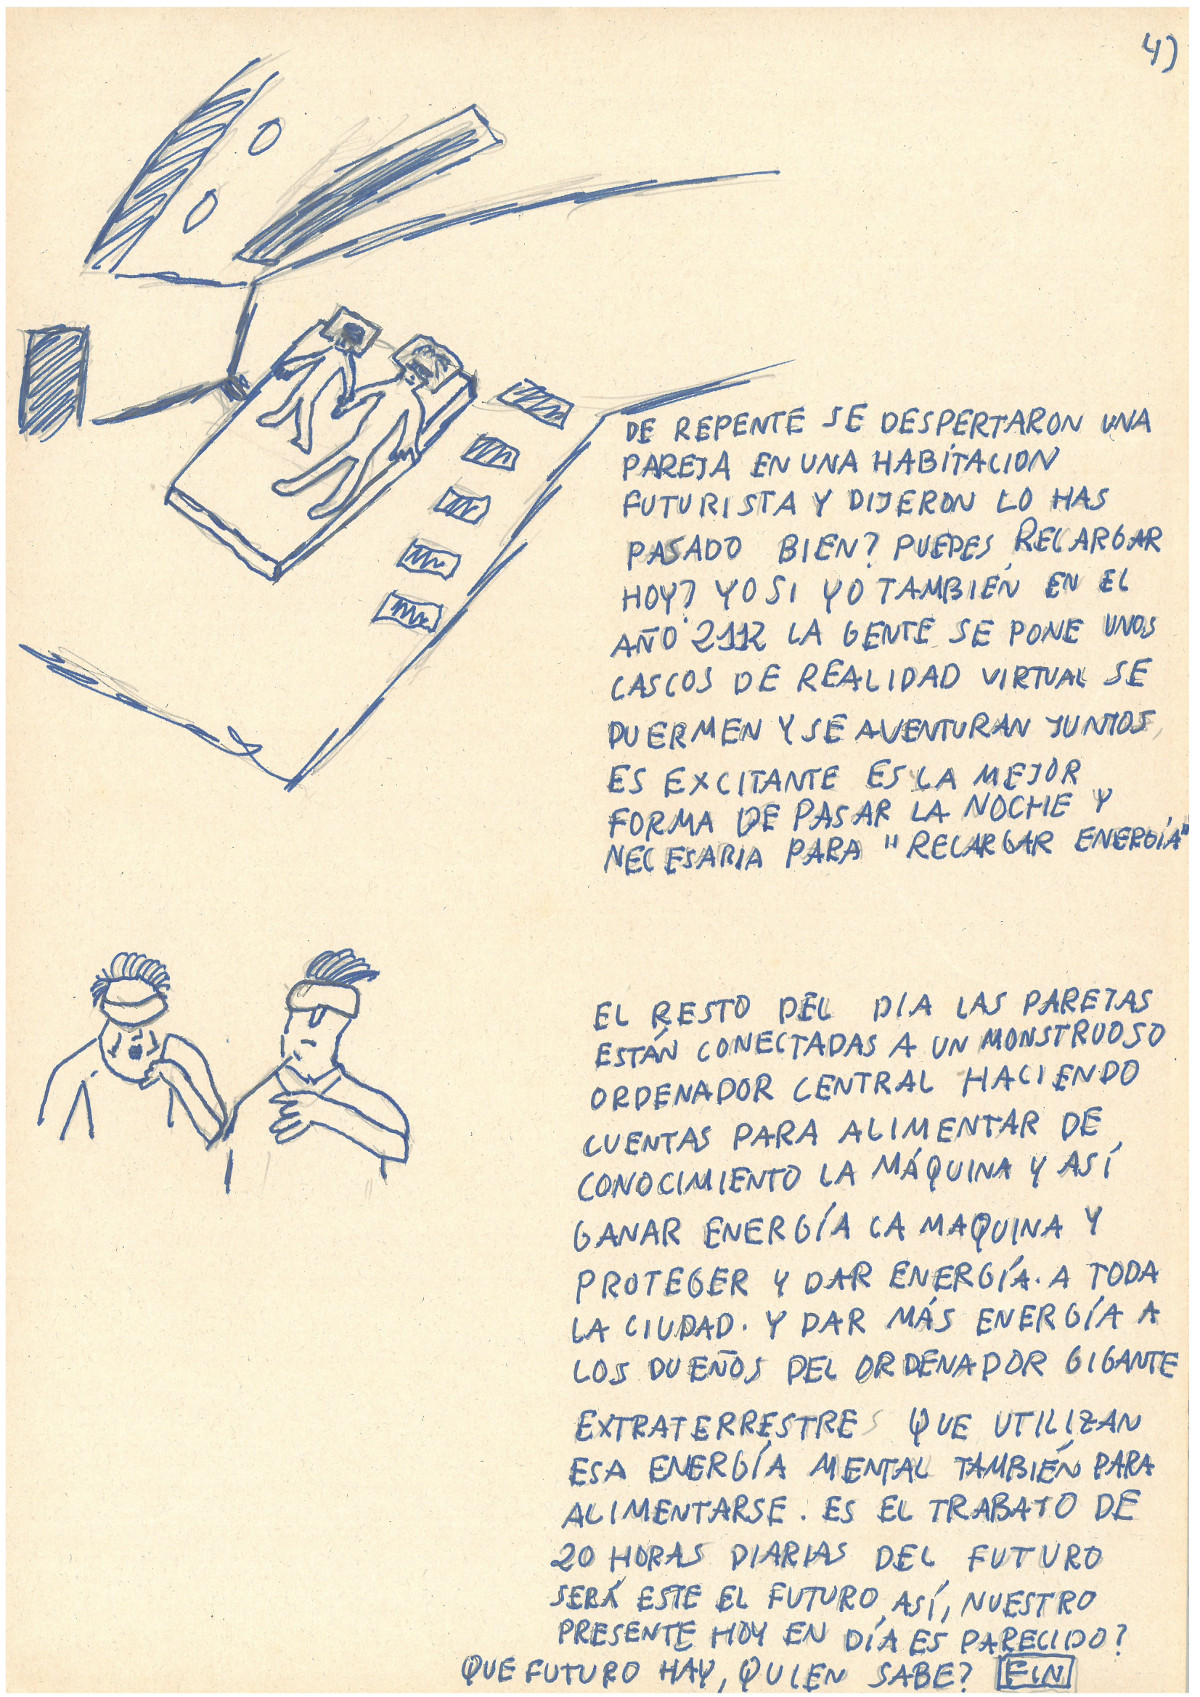 4)
DE REPENTE SE DESPERTARON UNA
PAREJA EN UNA HABITACION
FUTURISTA Y DIJERON LO HAS
PASADO BIEN? PUEDES RECARGAR
HOY? YO SI YO TAMBIÉN EN EL
AÑO 2112 LA GENTE SE PONE UNOS
CASCOS DE REALIDAD VIRTUAL SE
DUERMEN Y SE AVENTURAN JUNTOS,
ES EXCITANTE ES LA MEJOR
FORMA DE PASAR LA NOCHE Y
NECESARIA PARA "RECARGAR ENERGÍA"
EL RESTO DEL DIA LAS PAREJAS
ESTÁN CONECTADAS A UN MONSTRUOSO
ORDENADOR CENTRAL HACIENDO
CUENTAS PARA ALIMENTAR DE
CONOCIMIENTO LA MÁQUINA Y ASÍ
GANAR ENERGÍA LA MAQUINA Y
PROTEGER Y DAR ENERGÍA. A TODA
LA CIUDAD. Y DAR MÁS ENERGÍA A
LOS DUEÑOS DEL ORDENADOR GIGANTE
EXTRATERRESTRES QUE UTILIZAN
ESA ENERGÍA MENTAL TAMBIÉN PARA
ALIMENTARSE. ES EL TRABAJO DE
20 HORAS DIARIAS DEL FUTURO
SERÁ ESTE EL FUTURO ASÍ, NUESTRO
PRESENTE HOY EN DÍA ES PARECIDO?
QUE FUTURO HAY, QUIEN SABE? FIN